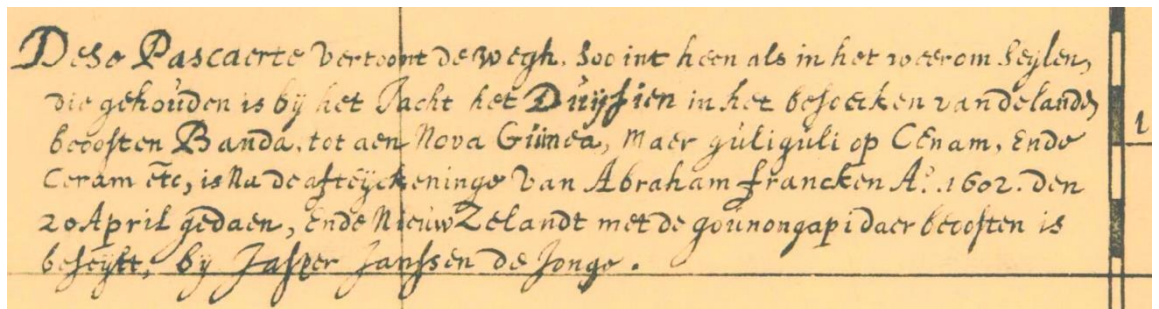 Dese Pascaerte vertoont de wegh, soo int heen als in het weerom seylen,
die gehouden is bij het Jacht het Duijfien in het besoecken van de landen
beoosten Banda, tot aen Nova Guinea, Maer guliguli op Cenam, Ende
Ceram etc, is Na de afteijckeninge van Abraham francken Aº. 1602. den
20 April gedaen, Ende Nieuw Zelandt met de gounongapi daer beoosten is
beseylt, by Jasper Janssen de Jonge.
1